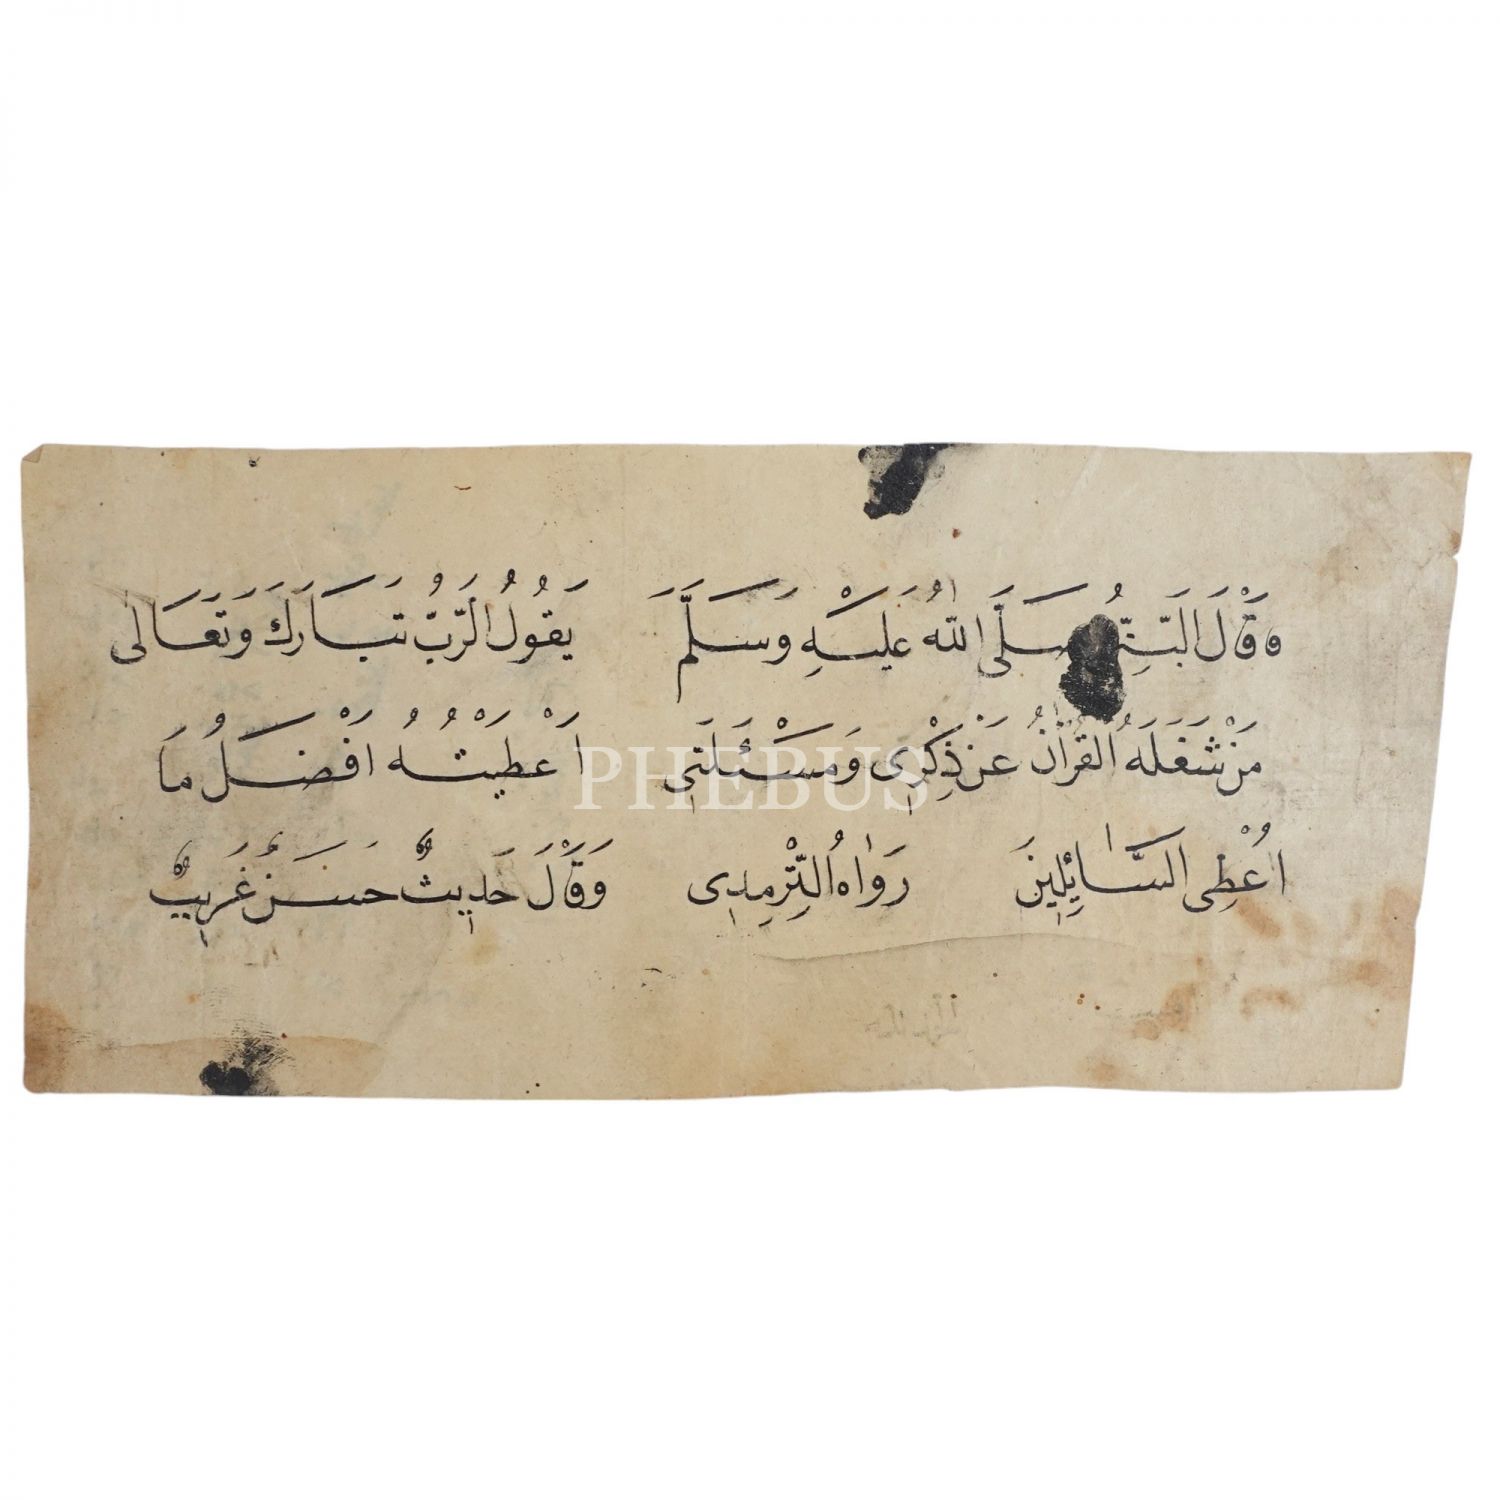 وَقَالَ النَّبِيُّ صَلَّى اللهُ عَلَيْهِ وَسَلَّمَ يَقُولُ الرَّبُّ تَبَارَكَ وَتَعَالَى
مَنْ شَغَلَهُ الْقُرْآنُ عَنْ ذِكْرِى وَمَسْئَلَتِى اَعْطَيْتُهُ اَفْضَلُ مَا
اُعْطِى السَّائِلِينَ رَوَاهُ التِّرْمِدِى وَقَالَ حَدِيثٌ حَسَنٌ غَرِيبٌ
PHEBUS